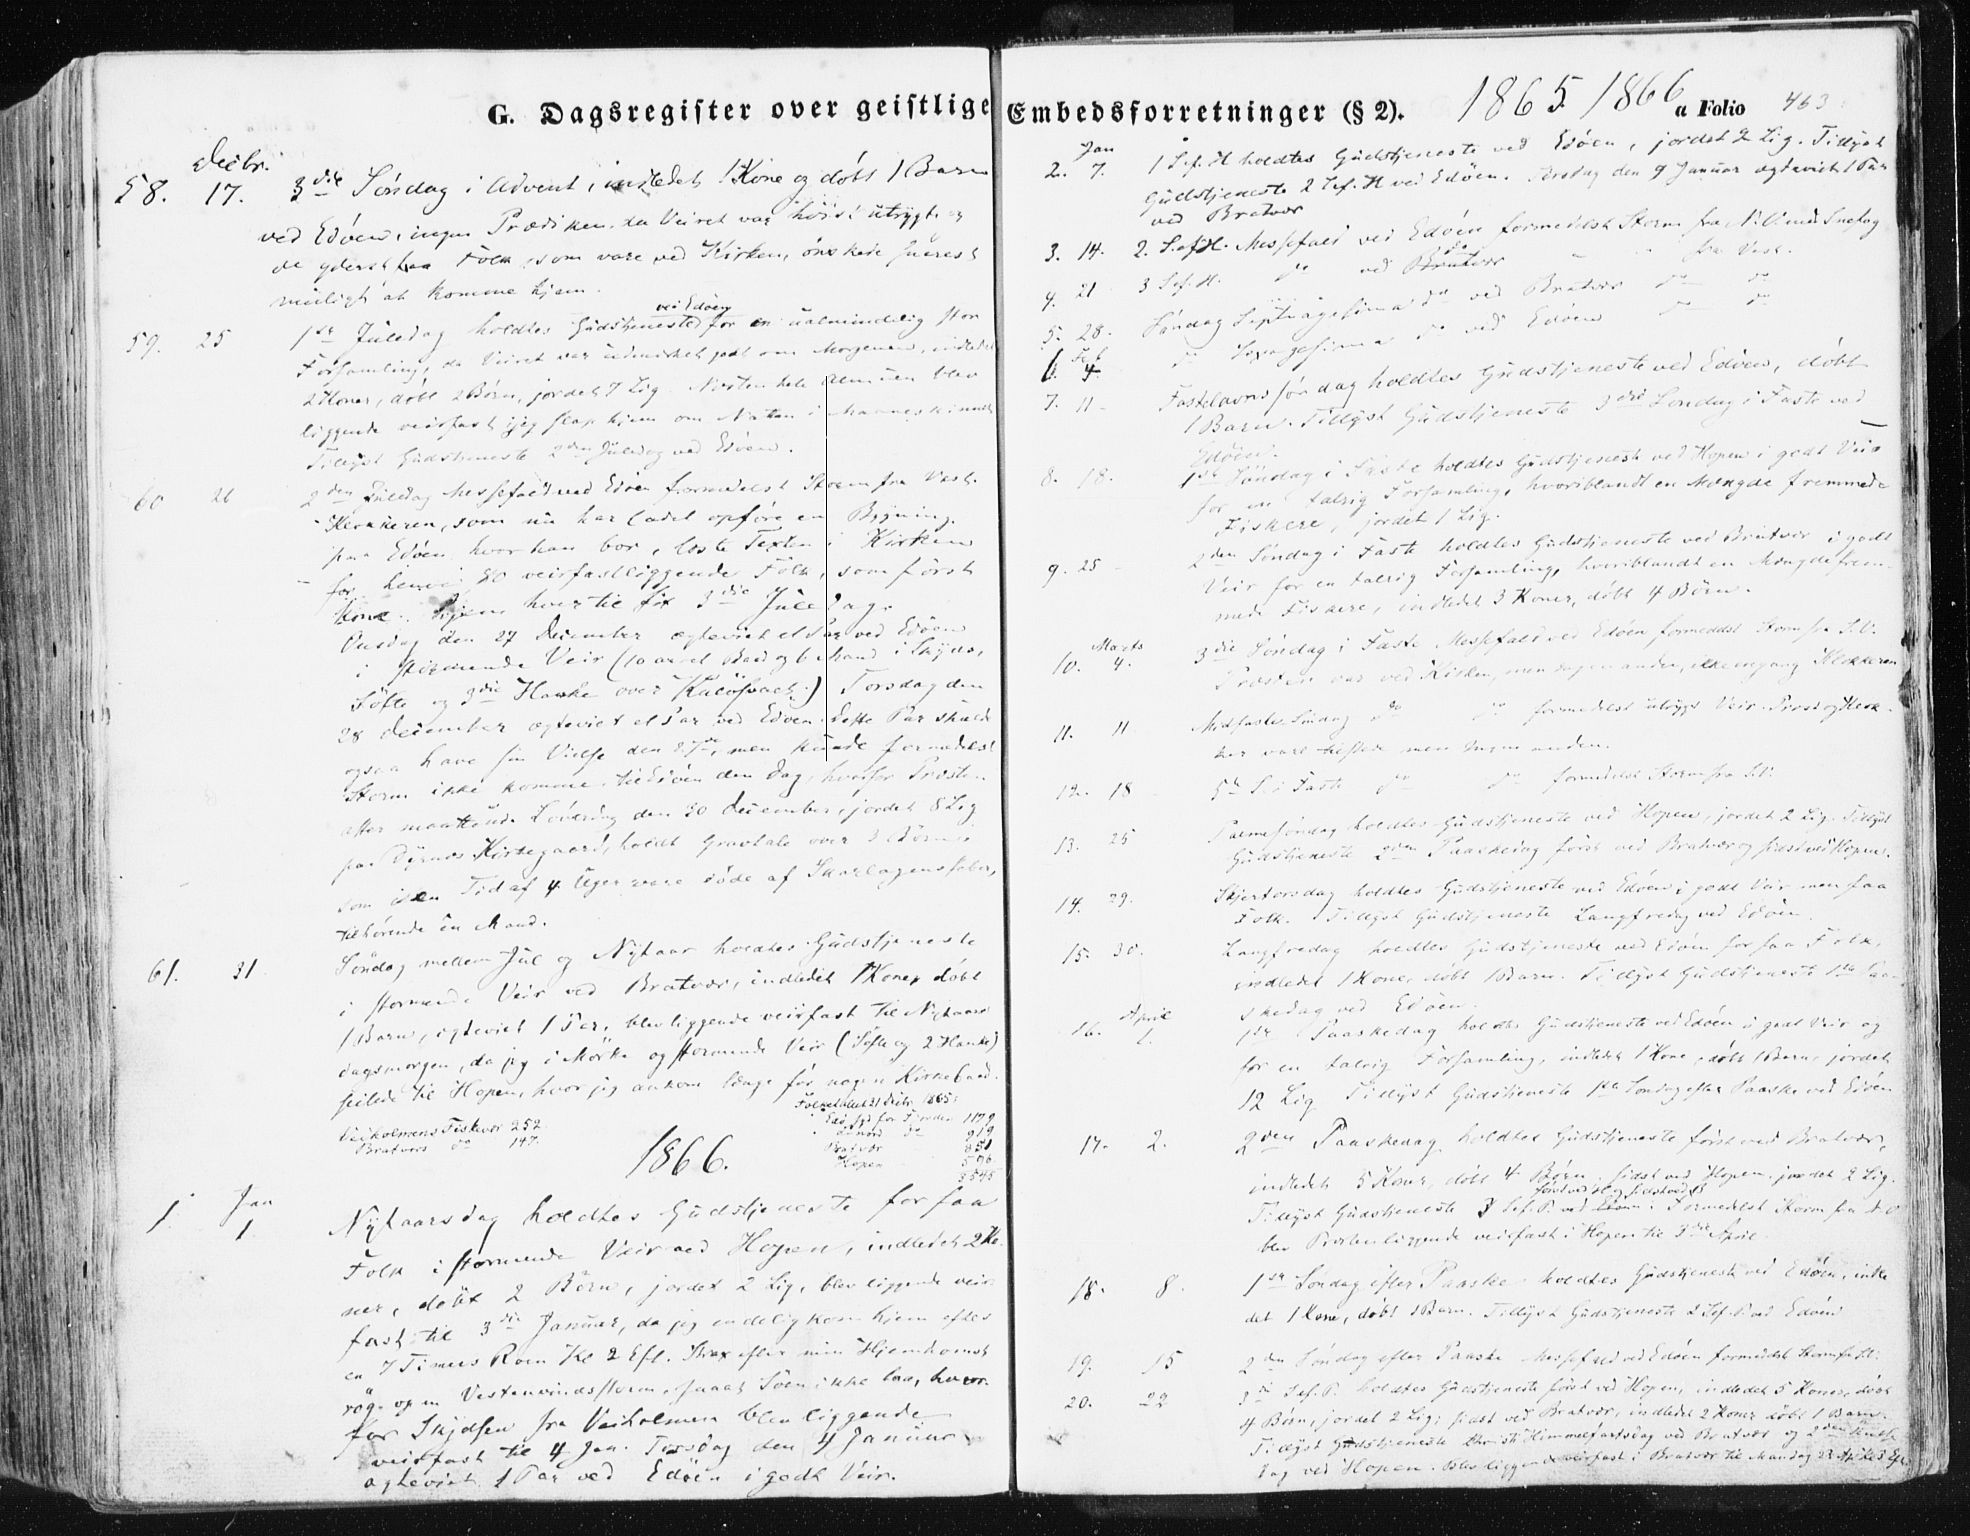 G. Dagsregister over geistlige Embedsforretninger (§ 2). 1865. 1866 a Folio 463.
Decbr.
58. 17. 3die Søndag i Advent, indledet 1 Kone og døbt 1 Barn
ved Edøen, ingen Prædiken, da Veiret var høist utrygt og
de yderst faa Folk, som vare ved Kirken, ønskede snarest
muligt at komme hjem.
59. 25 1ste Juledag holdtes Gudstjeneste ved Edøen for en ualmindelig stor
Forsamling, da Veiret var udmærket godt om Morgenen, indledet
2 Koner, døbt 2 Børn, jordet 7 Lig. Næsten hele Almuen blev
liggende veirfast, jeg slap hjem om Natten i Maaneskinnet
Tillyst Gudstjeneste 2den Juledag ved Edøen.
60 26 2den Juledag Messefald ved Edøen formedelst Storm fra Vest.
Klokkeren, som nu har ladet opføre en Bygning
paa Edøen, hvor han bor, læste Texten i Kirken
for henved 80 veirfastliggende Folk, som først
kom hjem hver til sit 3die Juledag.
Onsdag den 27 December ægteviet et Par ved Edøen
i stormende Veir (10 aaret Baad og 6 Mand i Skyds,
Søfte og 3die Hanke over ) Torsdag den
28 December ægteviet et Par ved Edøen. Dette Par skulde
ogsaa have sin Vielse den 27de, men kunde formedelst
Storm ikke komme til Edøen den Dag, hvorfor Præsten
atter maatte. Løverdag den 30 December, jordet 8 Lig
paa Dyrnes Kirkegaard, holdt Gravtale over 3 Børn,
som i en Tid af 4 Uger vare døde af Skarlagensfeber,
tilhørende én Mand.
61. 31. Søndag mellem Jul og Nytaar holdtes Gudstjeneste
i stormende Veir ved Bratvær, indledet 1 Kone, døbt
1 Barn, ægteviet 1 Par, blev liggende veirfast til Nytaars
dagsmorgen, da jeg i Mørke og stormende Veir (Søfte og 2 Hanke)
seilede til Hopen, hvor jeg ankom længe før nogen Kirkebaad.
Folketallet 31 Decbr. 1865:
Veiholmens Fiskevær 252. Edø, syd for Fjorden 1179
Bratværs do 147. nord do 919
Bratvær 851
Hopen 596
3545
1866.
1. Jan 1. Nytaarsdag holdtes Gudstjeneste for faa
Folk i stormende Veir ved Hopen, indledet 2 Ko-
ner, døbt 2 Børn, jordet 2 Lig, blev liggende veir-
fast til 3die Januar, da jeg endelig kom hjem efter
en 7 Timers Roen Kl 2 Eft. Strax efter min Hjemkomst
røg op en Vestenvindsstorm, saa at Søen ikke laae, hvor-
for Skydsen fra Veiholmen blev liggende
veirfast til 4 Jan. Torsdag den 4 Januar
ægteviet 1 Par ved Edøen i godt Veir.
Jan
2. 7. 1 S.ef.H holdtes Gudstjeneste ved Edøen, jordet 2 Lig. Tillyst
Gudstjeneste 2 S.ef.H ved Edøen. Tirsdag den 9 Januar ægteviet 1 Par
ved Bratvær
3. 14. 2. S.ef.H. Messefald ved Edøen formedelst Storm fra N.V. med Snefog
4. 21 3 S.ef.H. do ved Bratvær do " " fra Vest.
5. 28. Søndag Septuagesima do ved Bratvær do do
6. Feb 4. do Sexagesima do ved Edøen do do
7. 11 - Fastelavnssøndag holdtes Gudstjeneste ved Edøen, døbt
1 Barn. Tillyst Gudstjeneste 3die Søndag i Faste ved
Edøen.
8. 18. 1ste Søndag i Faste holdtes Gudstjeneste ved Hopen i godt Veir
for en talrig Forsamling, hvoriblandt en Mængde fremmede
Fiskere, jordet 1 Lig.
9. 25 - 2den Søndag i Faste holdtes Gudstjeneste ved Bratvær i godt
Veir for en talrig Forsamling, hvoriblandt en Mængde frem-
mede Fiskere, indledet 3 Koner, døbt 4 Børn.
10. Marts 4. 3die Søndag i Faste Messefald ved Edøen formedelst Storm fra S.V.
Præsten var ved Kirken, men ingen anden, ikke engang Klokkeren
11. 11 Midfaste Søndag do do formedelst utrygt Veir. Præst og Klok-
ker vare tilstede men Ingen anden.
12. 18 5te S. i Faste do do formedelst Storm fra S.V.
13. 25 Palmesøndag holdtes Gudstjeneste ved Hopen, jordet 2 Lig. Tillyst
Gudstjeneste 2den Paaskedag først ved Bratvær og sidst ved Hopen.
14. 29. Skjertorsdag holdtes Gudstjeneste ved Edøen i godt Veir men faa
Folk. Tillyst Gudstjeneste Langfredag ved Edøen.
15. 30. Langfredag holdtes Gudstjeneste ved Edøen for faa Folk,
indledet 1 Kone, døbt 1 Barn. Tillyst Gudstjeneste 1ste Paa-
skedag ved Edøen.
16. April 1. 1ste Paaskedag holdtes Gudstjeneste ved Edøen i godt Veir og
for en talrig Forsamling, indledet 1 Kone, døbt 1 Barn, jordet
12 Lig Tillyst Gudstjeneste 1ste Søndag efter Paaske ved Edøen
17. 2. 2den Paaskedag holdtes Gudstjeneste først ved Bratvær,
indledet 5 Koner, døbt 4 Børn, sidst ved Hopen, jordet 2 Lig.
Tillyst Gudstjeneste 3 S.ef.P. ved først ved H og sidst ved B. Formedelst Storm fra
blev Præsten liggende veirfast i Hopen til 3die April.
18. 8. 1ste Søndag efter Paaske holdtes Gudstjeneste ved Edøen, indle-
det 1 Kone, døbt 1 Barn. Tillyst Gudstjeneste 2 S.ef.P. ved Edøen
19. 15 2den Søndag efter Paaske Messefald ved Edøen formedelst Storm fra
20. 22 3di S.ef.P. holdtes Gudstjeneste først ved Hopen, indledet 5 Koner, døbt
4 Børn, jordet 2 Lig; sidst ved Bratvær, indledet 2 Koner døbt 1 Barn.
Tillyst Gudstjeneste Christi Himmelfartsdag ved Bratvær og 2den Pintse
dag ved Hopen. Blev liggende veirfast i Bratvær til Mandag 23 April